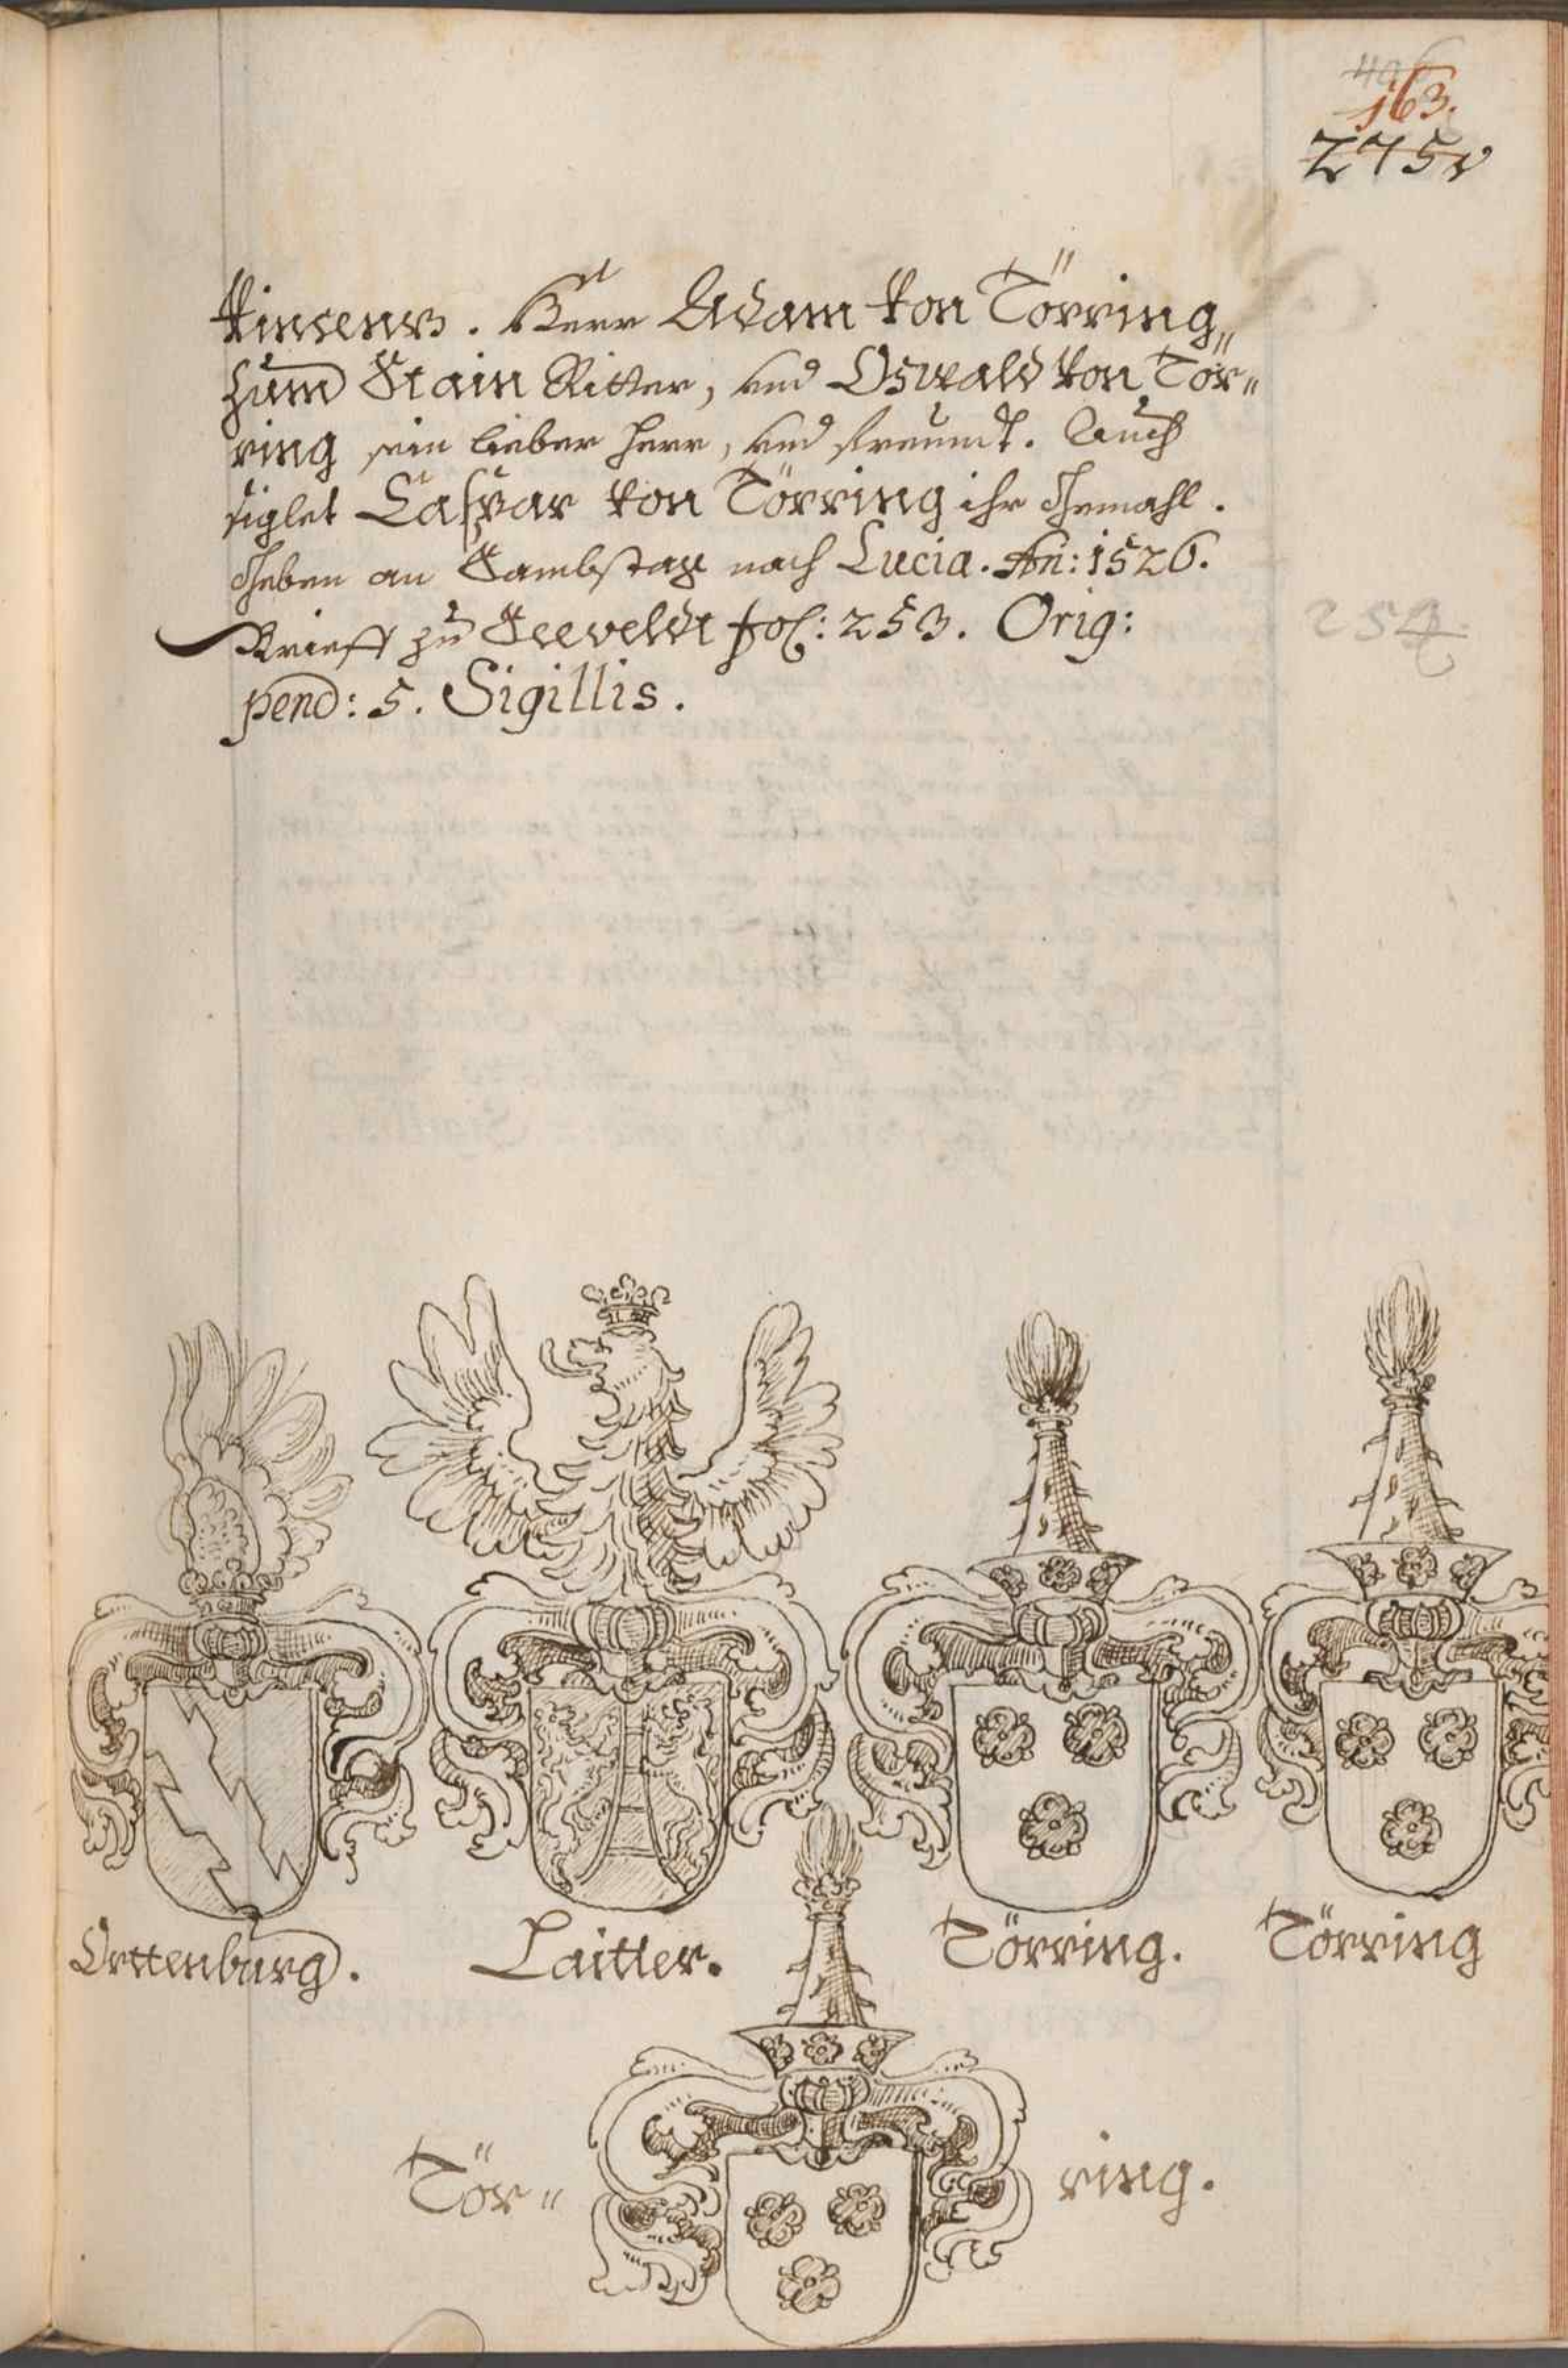 406
163.
275v
Herr Adam von Törring„
zum Stain Ritter, vnd Oswald von Tör„
ring sein lieber Herr, vnd freundt. Auch
siglet Caspar von Törring ihr Gemahl.
Geben an Sambstag nach Lucia. An: 1526.
Brieff zu Seeveldt fol: 253. Orig:
254
pend: 5. Sigillis.
Orttenburg.
Laitter.
Törring.
Törring
Tör„
ring.